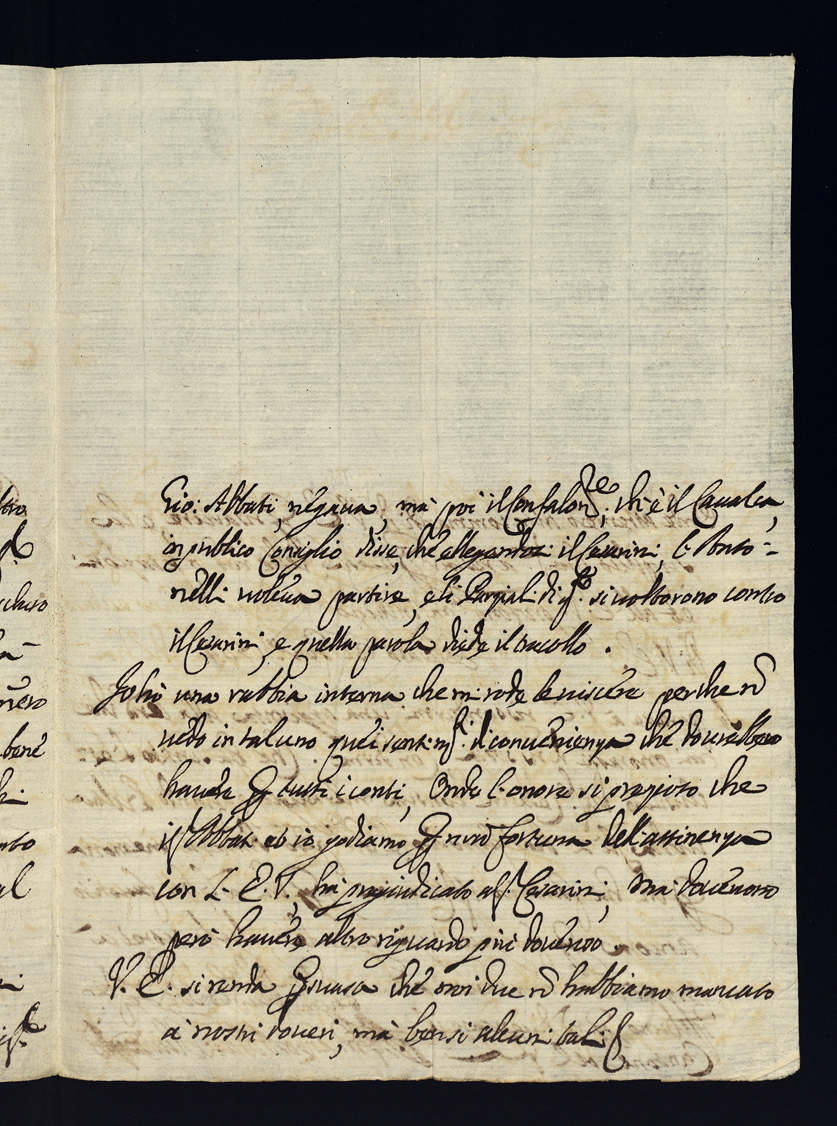 Gio: Abbati, negava, mà poi il Confalon.re, ch'è il Cavalca,
in publico Consiglio disse, che allegandosi il Cesarini, l'Anto=
nelli voleva partire, e li Parzial: di q.sto si voltorono contro
il Cesarini, e quella parola diede il tracollo.
Io hò una rabbia interna che mi rode le viscere perche nō
vedo in taluno quei sentim.ti di convenienza che dovrebbero
havere per tutti i conti, Onde l'onore si prezioso che
il S.r Abbati et io godiamo per nrā fortuna dell'attinenza
con L'E.V., hà pregiudicato al S.r Cesarini, Mà dovevano
però havere altro riguardo più doveroso.
V.E. si renda persuasa che noi due nō habbiamo mancato
à nostri doveri, mà bensi alcuni tali